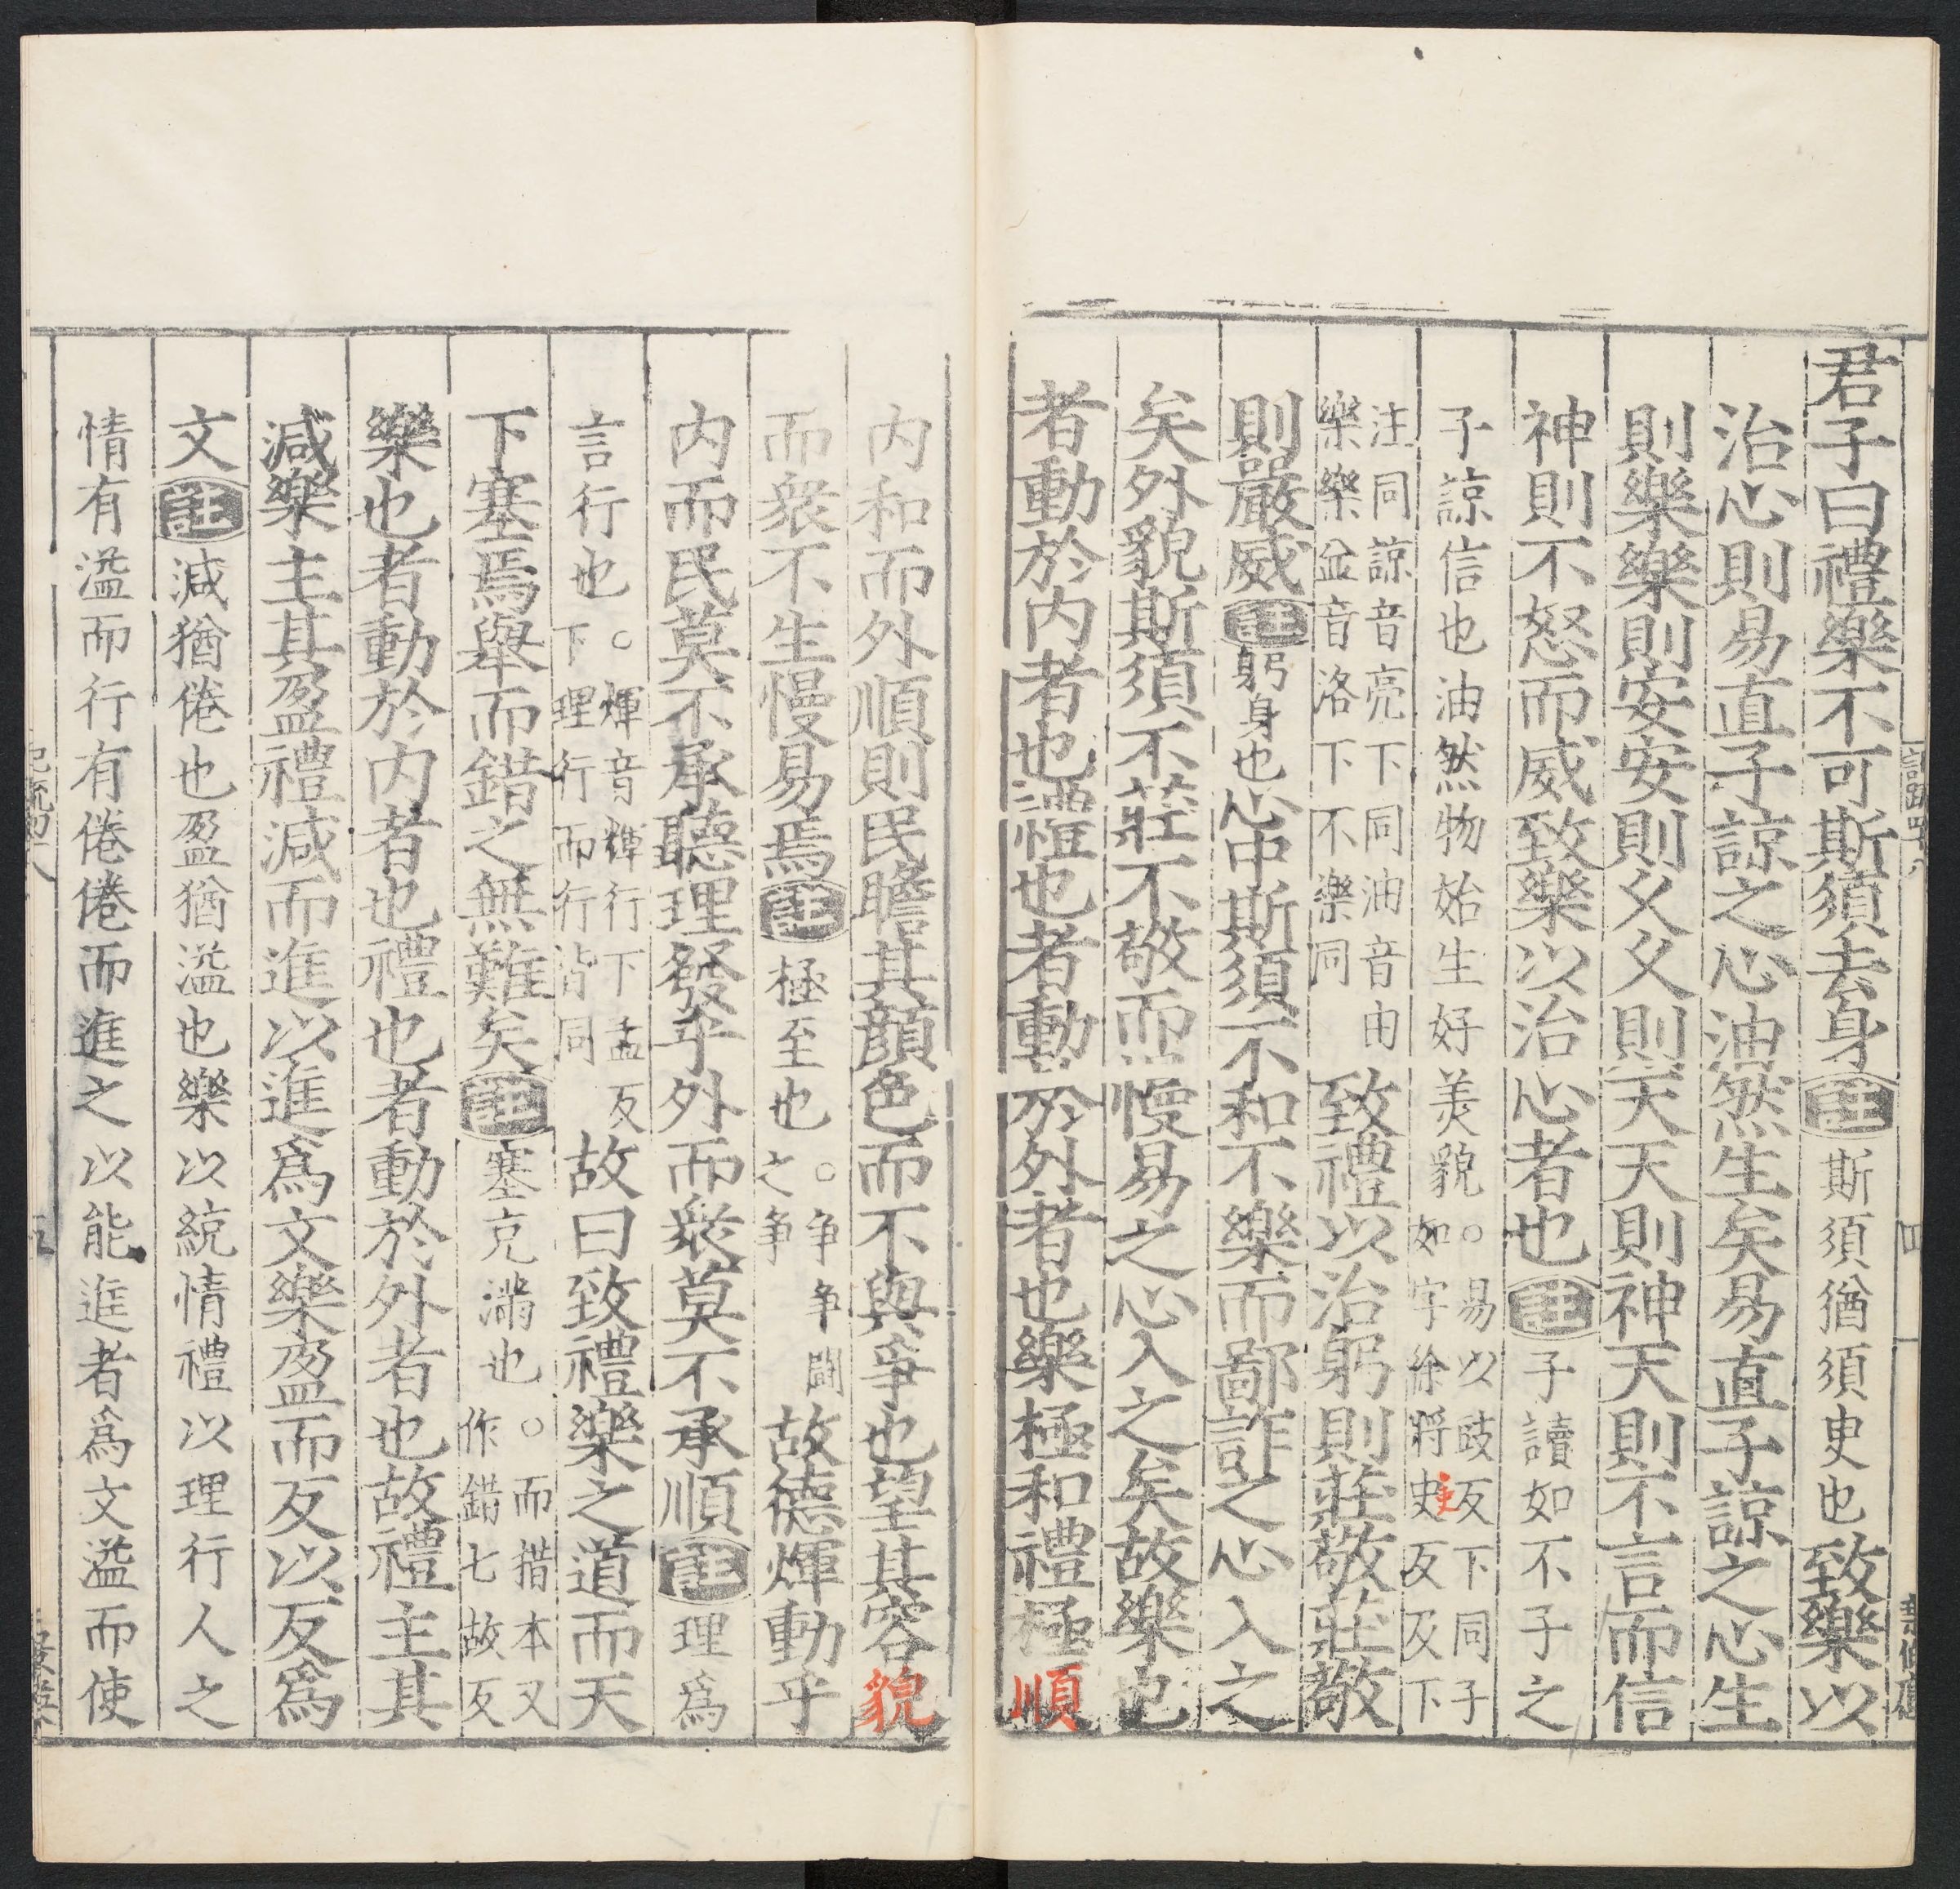 君子曰禮樂不可斯須去身註斯須猶須臾也致樂以
治心則易直子諒之心油然生矣易直子諒之心生
則樂樂則安安則久久則天天則神天則不言而信
神則不怒而威致樂以治心者也註子讀如不子之
子諒信也油然物始生好美貌○易以豉反下同子如字徐將吏反及下
注同諒音亮下同油音由樂樂並音洛下不樂同致禮以治躬則莊敬莊敬
則嚴威註躬身也心中斯須不和不樂而鄙詐之心入之
矣外貌斯須不莊不敬而慢易之心入之矣故樂也
者動於內者也禮也者動於外者也樂極和禮極順
內和而外順則民瞻其顏色而不與爭也望其容貌
而衆不生慢易焉註極至也○爭爭鬬之爭故德煇動乎
內而民莫不承聽理發乎外而衆莫不承順註理爲
言行也○煇音輝行下孟反下理行行而行皆同故曰致禮樂之道而天
下塞焉舉而錯之無難矣註塞充滿也○而措本又作作錯七故反
樂也者動於內者也禮也者動於外者也故禮主其
減樂主其盈禮減而進以進爲文樂盈而反以反爲
文註減猶倦也盈猶溢也樂以統情禮以理行人之
情有溢而行有倦倦而進之以能進者爲文溢而使